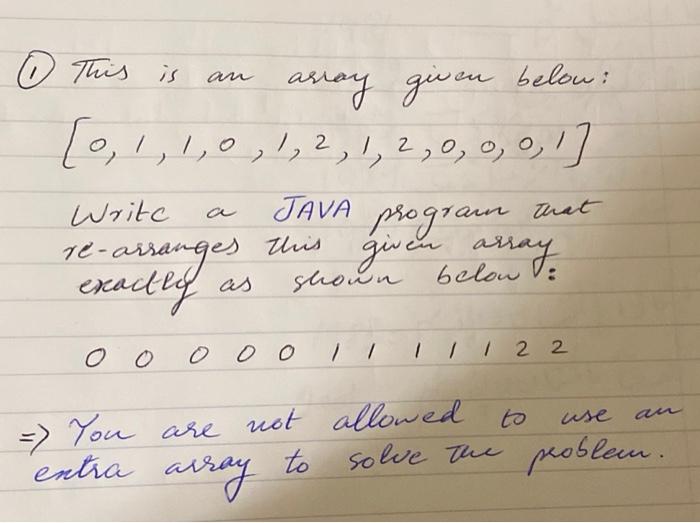 ① This is an array given below:
[0, 1, 1, 0, 1, 2, 1, 2, 0, 0, 0, 1]
Write a JAVA program that
re-arranges this given array
exactly as shown below:
0 0 0 0 0 1 1 1 1 1 2 2
=> You are not allowed to use an
extra array to solve the problem.